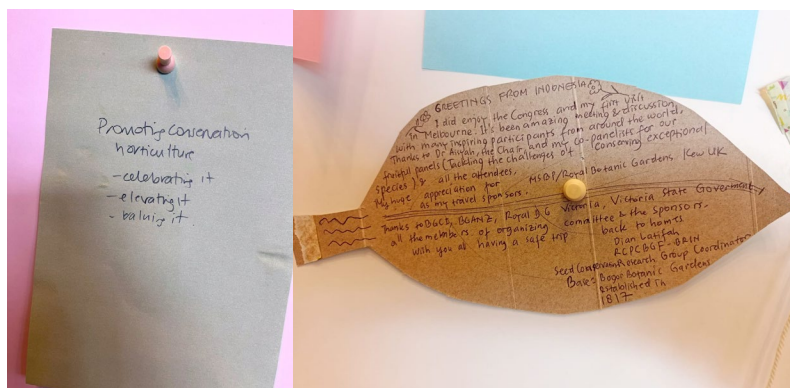 Promoting Conservation
horticulture
- celebrating it
- elevating it
- valuing it
GREETINGS FROM INDONESIA
I did enjoy the Congress and my first visit
in Melbourne. It's been amazing meeting & discussion
with many inspiring participants from around the world.
Thanks to Dr Aisyah, the Chair, and my co-panelists for our
fruitful panels (Tackling the challenges of conserving exceptional
species) & all the attendees.
My huge appreciation for MSBP/Royal Botanic Gardens, Kew UK
as my travel sponsors.
Thanks to BGCI, BGANZ, Royal B G Victoria, Victoria State Government,
all the members of organizing committee & the sponsors.
with you all having a safe trip back to homes
Dian Latifah
RCPCBGF-BRIN
Seed Conservation Research Group Coordinator
Base: Bogor Botanic Gardens
established in
1817